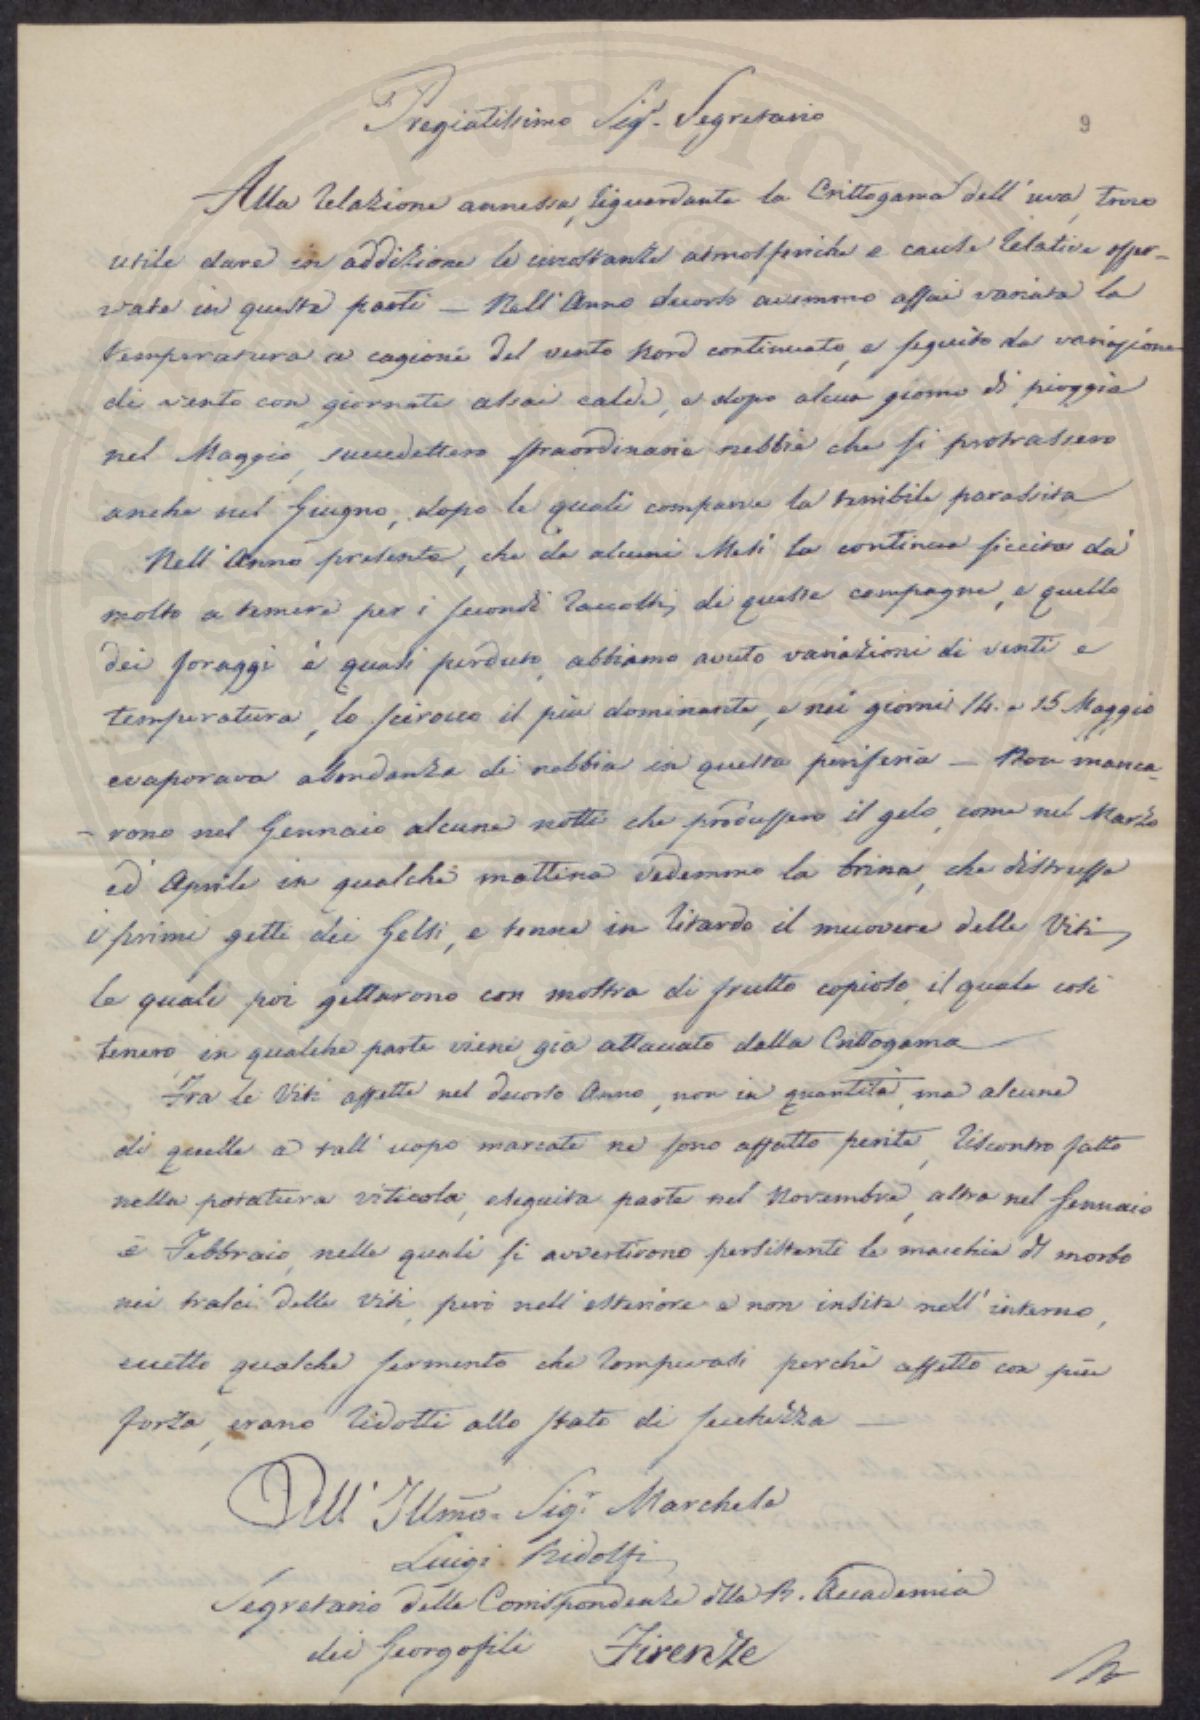 9
Pregiatissimo Sigr. Segretario
Alla relazione annessa, riguardante la Crittogama dell'uva, trovo
utile dare in addizione le circostanze atmosferiche e cause relative osser-
vate in queste parti — Nell'Anno decorso avemmo assai variata la
temperatura a cagione del vento Nord continuato, e seguito da variazione
di vento con giornate assai calde, e dopo alcun giorno di pioggia
nel Maggio, succedettero straordinarie nebbie che si protrassero
anche nel Giugno, dopo le quali comparve la terribile parassita
Nell'Anno presente, che da alcuni Mesi la continua siccità dà
molto a temere per i secondi raccolti, di queste campagne, e quello
dei foraggi è quasi perduto, abbiamo avuto variazioni di venti e
temperatura, lo scirocco il più dominante, e nei giorni 14. e 15 Maggio
evaporava abondanza di nebbia in questa periferia — Non manca-
-rono nel Gennaio alcune notti che produssero il gelo, come nel Marzo
ed Aprile in qualche mattina vedemmo la brina, che distrusse
i primi getti dei Gelsi, e tenne in ritardo il muovere delle Viti,
le quali poi gettarono con mostra di frutto copioso, il quale così
tenero, in qualche parte viene già attaccato dalla Crittogama
Fra le Viti affette nel decorso Anno, non in quantità, ma alcune
di quelle a tall'uopo marcate ne sono affatto perite, riscontro fatto
nella potatura viticola, eseguita parte nel Novembre, altra nel Gennaio
e Febbraio, nelle quali si avvertirono persistenti le macchie di morbo
nei tralci delle Viti, però nell'esteriore e non insite nell'interno,
eccetto qualche sermento che rompevasi perchè affetto con più
forza, erano ridotti allo stato di secchezza —
Dell'Illmo. Sigr. Marchese
Luigi Ridolfi
Segretario delle Corrispondenze della R. Accademia
dei Georgofili Firenze